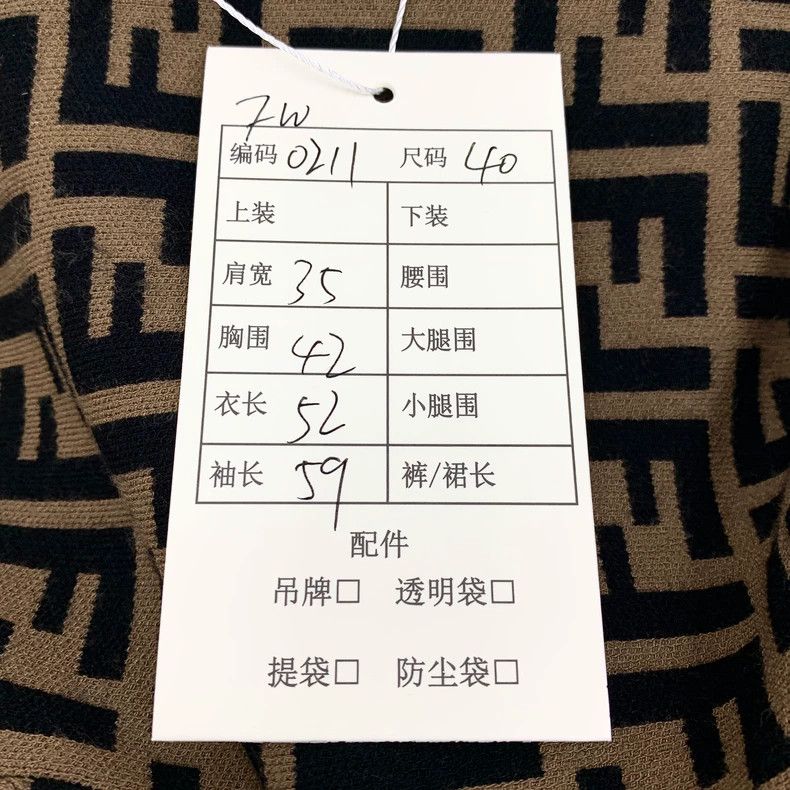 FW
编码 0211 尺码 40
上装 下装
肩宽 35 腰围
胸围 42 大腿围
衣长 52 小腿围
袖长 59 裤/裙长
配件
吊牌□ 透明袋□
提袋□ 防尘袋□